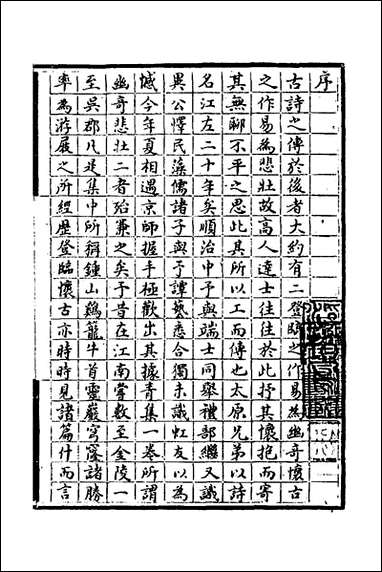 序
古詩之傳於後者大約有二登臨之作易為幽奇懷古
之作易為悲壯故高人達士往往於此抒其懷抱而寄
其無聊不平之思此其所以工而傳也太原兄弟以詩
名江左二十年矣順治中予與端士同舉禮部繼又識
異公懌民藻儒諸子與予譚藝悉合獨未識虹友以為
憾今年夏相遇京師握手極歡出其據青集一卷所謂
幽奇悲壯二者殆兼之矣予昔在江南嘗數至金陵一
至吳郡凡是集中所稱鍾山鷄籠牛首靈巖穹窿諸勝
率為游屐之所經歷登臨懷古亦時時見諸篇什而言